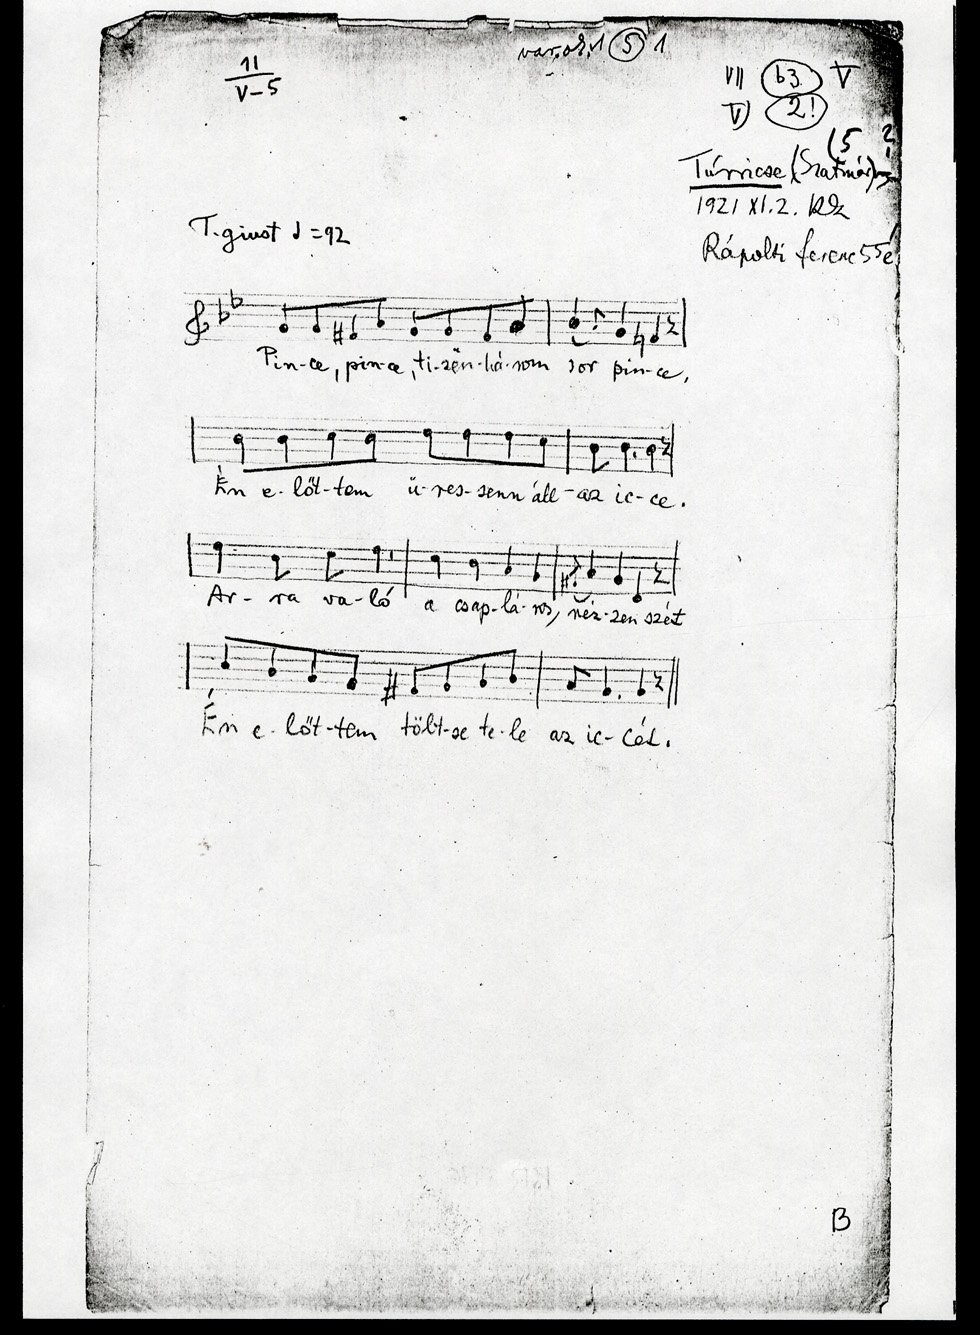 11
V-5
var. ol. 1 (5) 1
VII (b3) V
V) (2!)
(5 ?
Túrricse (Szatmár)
1921 XI. 2. KZ
Rápolti Ferenc 55 é
T. giust ♩ = 92
Pin-ce, pin-ce, ti-zën-há-rom sor pin-ce,
Én e-lőt-tem ü-res-senn áll-az ic-ce.
Ar-ra va-ló a csap-lá-ros, néz-zen szét
Én e-lőt-tem tölt-se te-le az ic-cét.
B